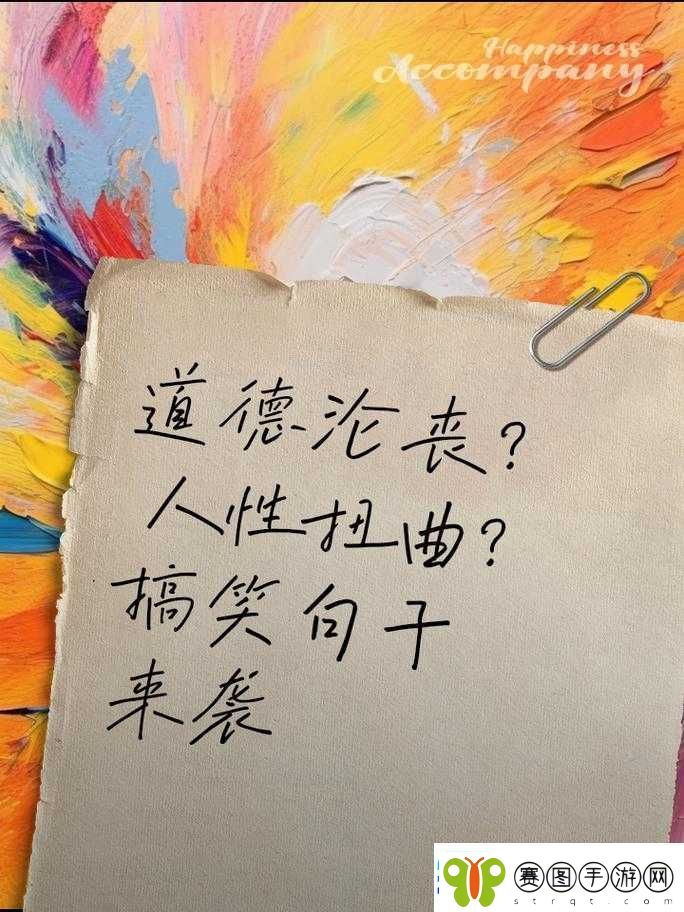 Happiness
Accompany
道德沦丧？
人性扭曲？
搞笑句子
来袭
赛图手游网
strqt.com